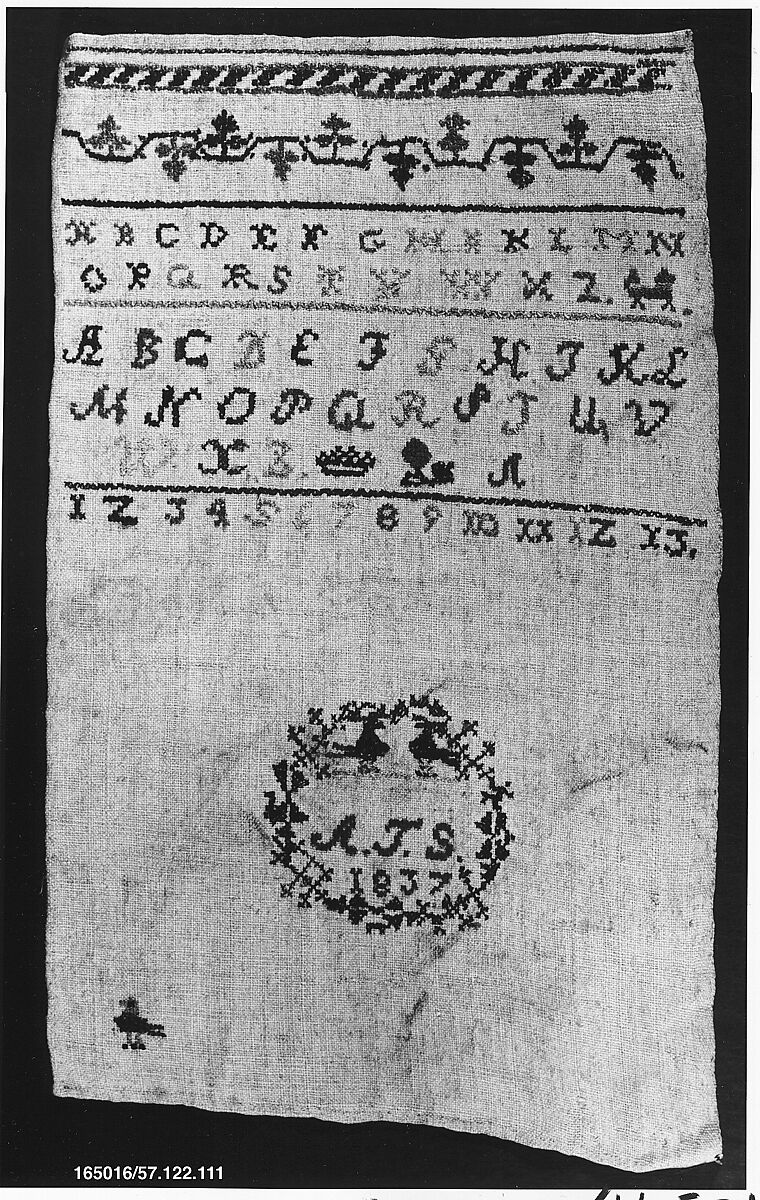 A B C D E F G H I K L M N
O P Q R S T V W X Z.
A B C D E F G H I K L
M N O P Q R S T U V
W X Z. A
1 2 3 4 5 6 7 8 9 10 11 12 13.
A. T. S.
1837
165016/57.122.111